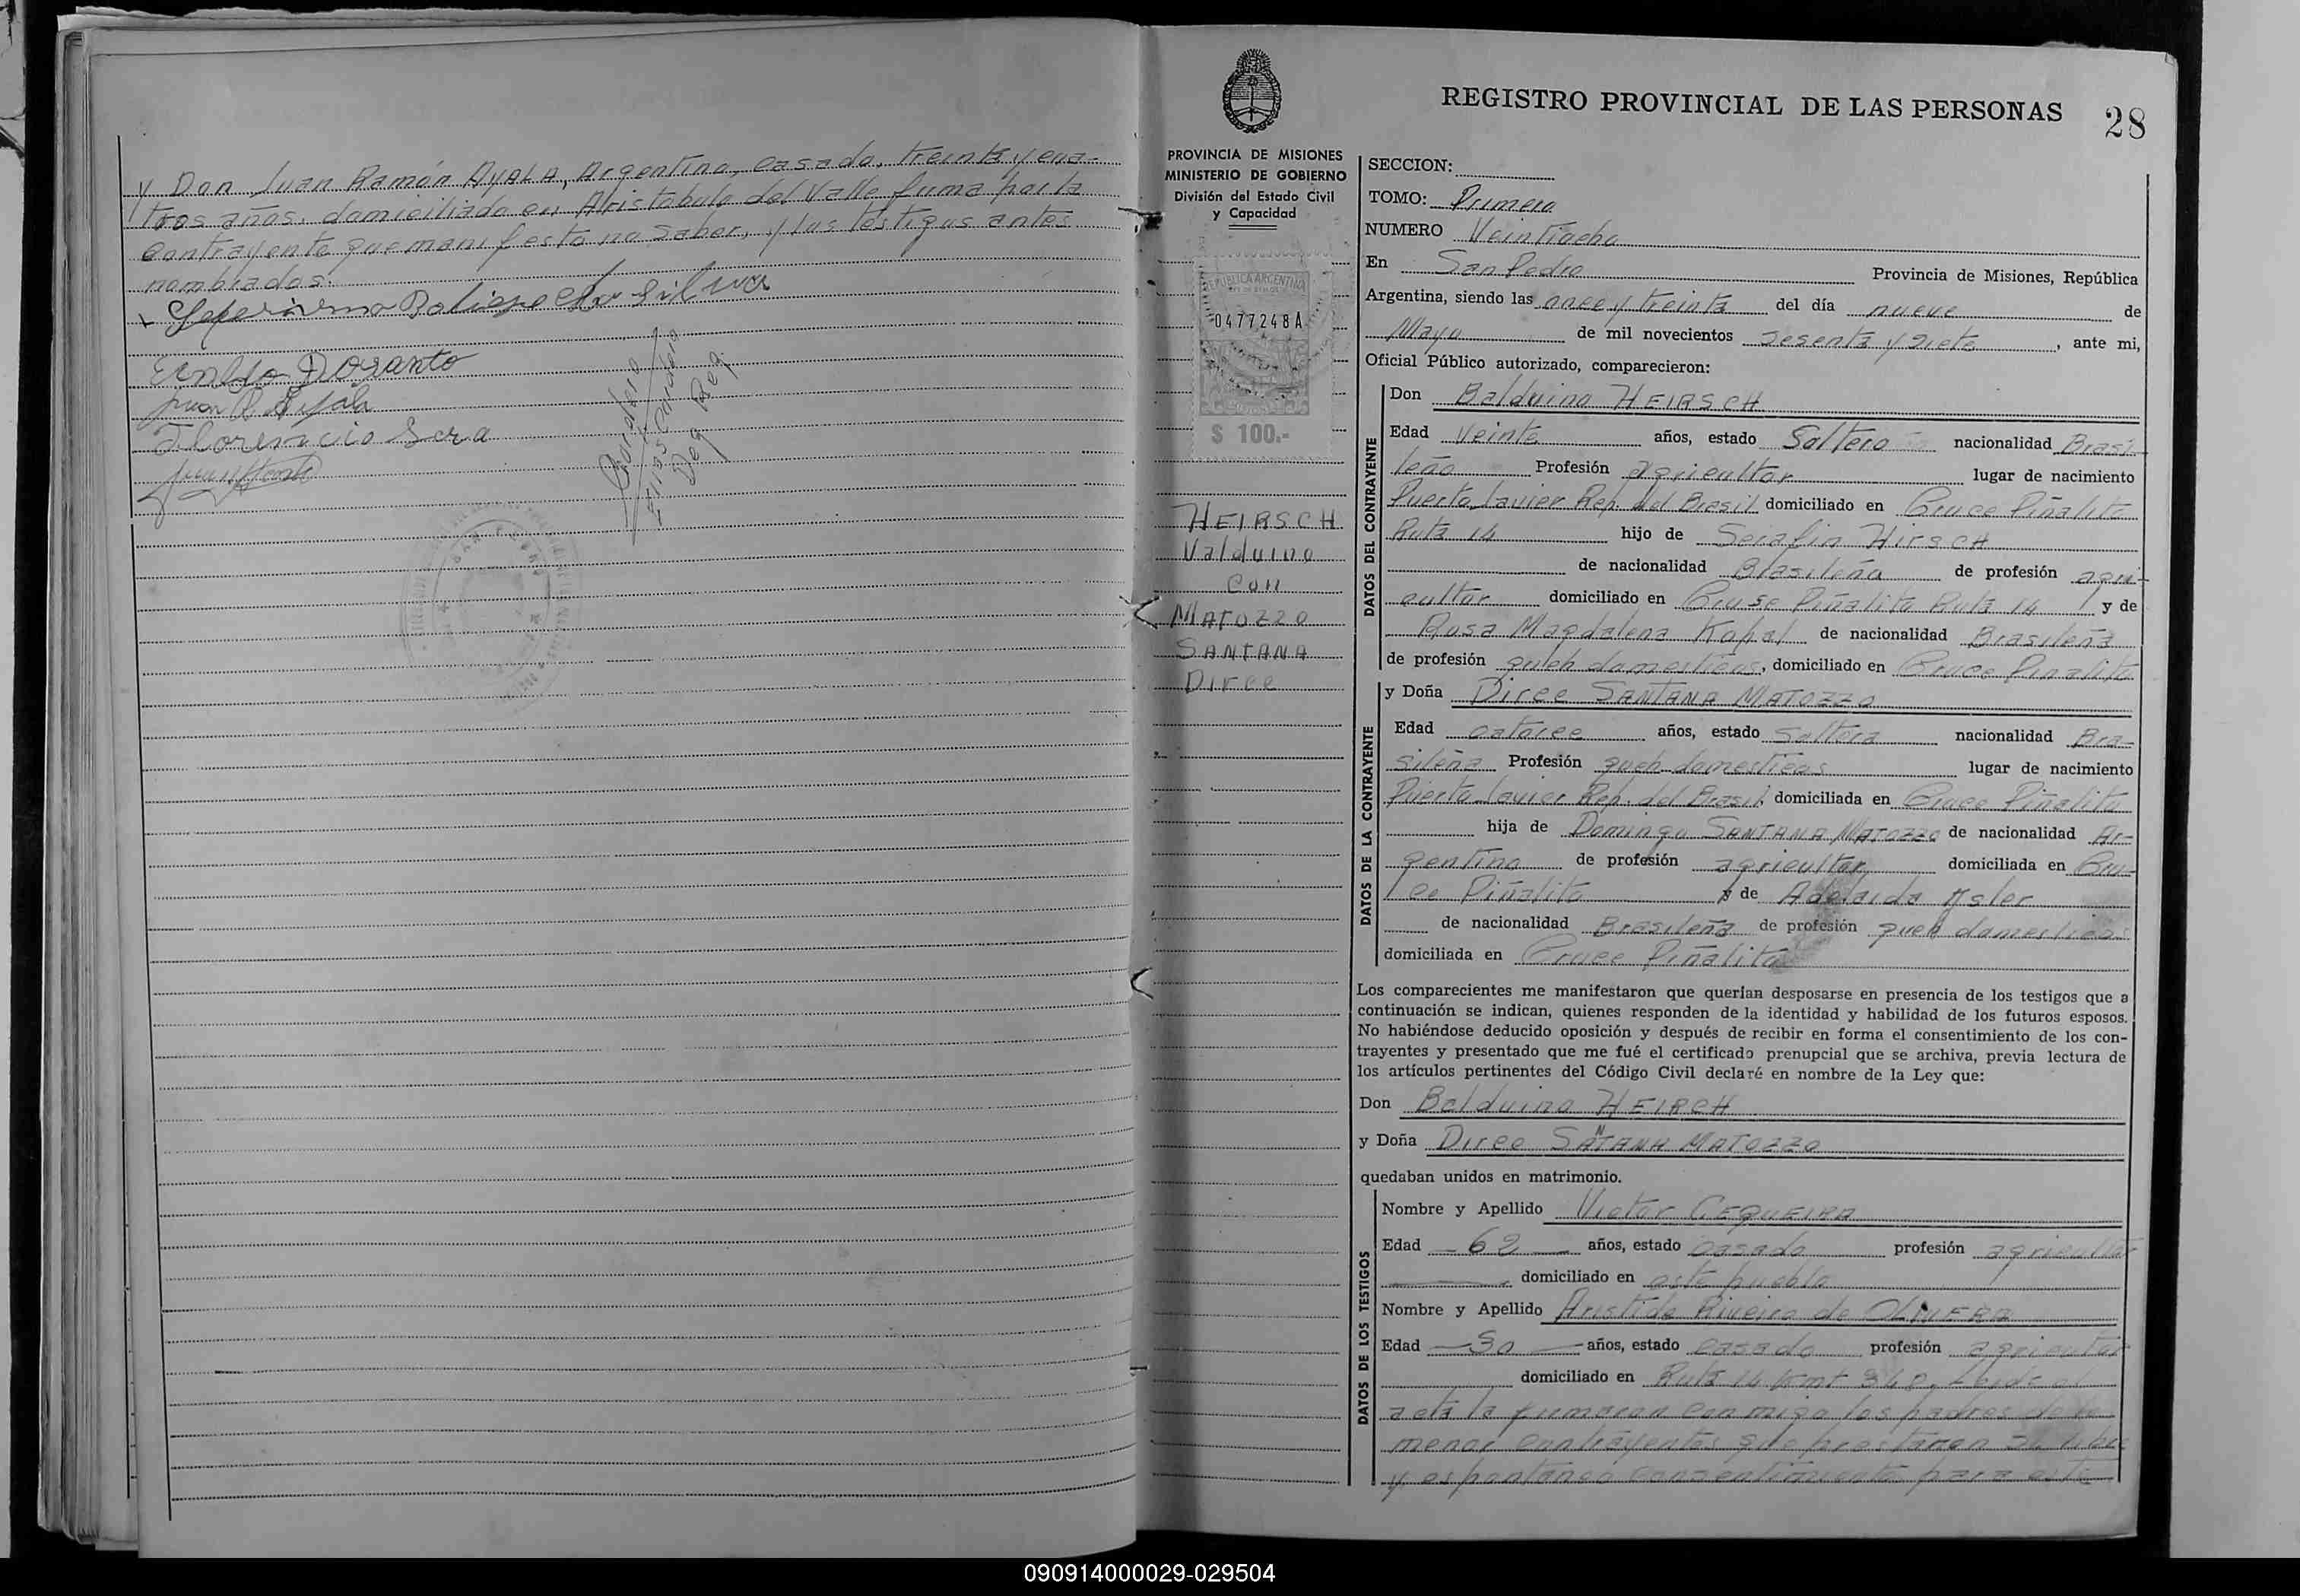 y Don Juan Ramón AYALA, Argentino, casado, treinta y cua-
tros años, domiciliado en Aristóbulo del Valle firma por la
contrayente que manifesto no saber, y los testigos antes
nombrados.
Silva
Dosanto
Juan R. Ayala
Florencio
REGISTRO PROVINCIAL DE LAS PERSONAS
28
PROVINCIA DE MISIONES
MINISTERIO DE GOBIERNO
División del Estado Civil
y Capacidad
REPUBLICA ARGENTINA
0477248A
$ 100.-
HEIRSCH
Valduino
con
MATOZZO
SANTANA
Dirce
SECCION:
TOMO: Primero
NUMERO Veintiocho
En San Pedro Provincia de Misiones, República
Argentina, siendo las once y treinta del día nueve de
Mayo de mil novecientos sesenta y siete, ante mi,
Oficial Público autorizado, comparecieron:
DATOS DEL CONTRAYENTE
Don Balduino HEIRSCH
Edad Veinte años, estado Soltero nacionalidad Brasi-
leño Profesión agricultor lugar de nacimiento
Puerto Javier Rep. del Brasil domiciliado en Cruce Piñalito
Ruta 14 hijo de Serafin HIRSCH
de nacionalidad Brasileña de profesión agri-
cultor domiciliado en Cruse Piñalito Ruta 14 y de
Rosa Magdalena Kopal de nacionalidad Brasileña
de profesión queh domesticos, domiciliado en Cruce Piñalito
DATOS DE LA CONTRAYENTE
y Doña Dirce SANTANA MATOZZO
Edad catorce años, estado Soltera nacionalidad Bra-
sileña Profesión queh domesticos lugar de nacimiento
Puerto Javier Rep. del Brasil domiciliada en Cruce Piñalito
hija de Domingo SANTANA MATOZZO de nacionalidad Ar-
gentino de profesión agricultor domiciliada en Cru-
ce Piñalito y de Adelaida
de nacionalidad Brasileña de profesión queh domesticos
domiciliada en Cruce Piñalito
Los comparecientes me manifestaron que querían desposarse en presencia de los testigos que a
continuación se indican, quienes responden de la identidad y habilidad de los futuros esposos.
No habiéndose deducido oposición y después de recibir en forma el consentimiento de los con-
trayentes y presentado que me fué el certificado prenupcial que se archiva, previa lectura de
los artículos pertinentes del Código Civil declaré en nombre de la Ley que:
Don Balduino HEIRCH
y Doña Dirce SANTANA MATOZZO
quedaban unidos en matrimonio.
DATOS DE LOS TESTIGOS
Nombre y Apellido Victor CEQUEIRA
Edad 62 años, estado casado profesión agricultor
domiciliado en este pueblo
Nombre y Apellido Aristide Riveiro de OLIVERA
Edad 30 años, estado casado profesión agricultor
domiciliado en Ruta 14 Kmt Leida el
acta la firmaron conmigo los padres de la
menor contrayentes que prestaron su libre
y espontaneo consentimiento para este
090914000029-029504